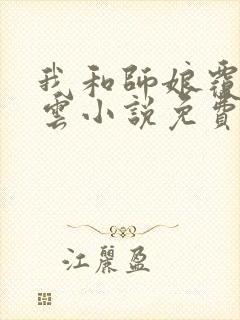 我和師娘覆
雲小説免費
江麗盈